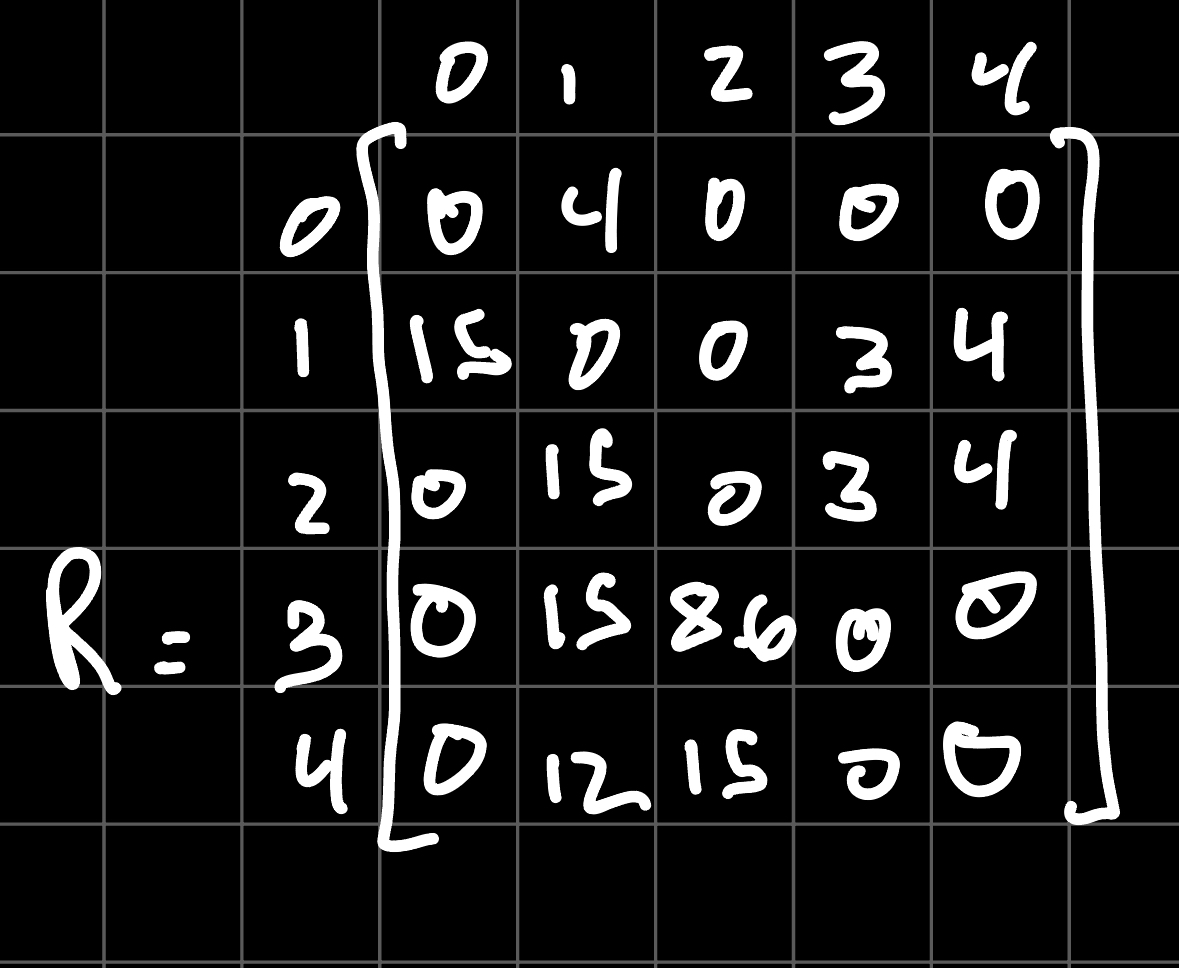 0 1 2 3 4
0 0 4 0 0 0
1 15 0 0 3 4
2 0 15 0 3 4
R = 3 0 15 8.6 0 0
4 0 12 15 0 0